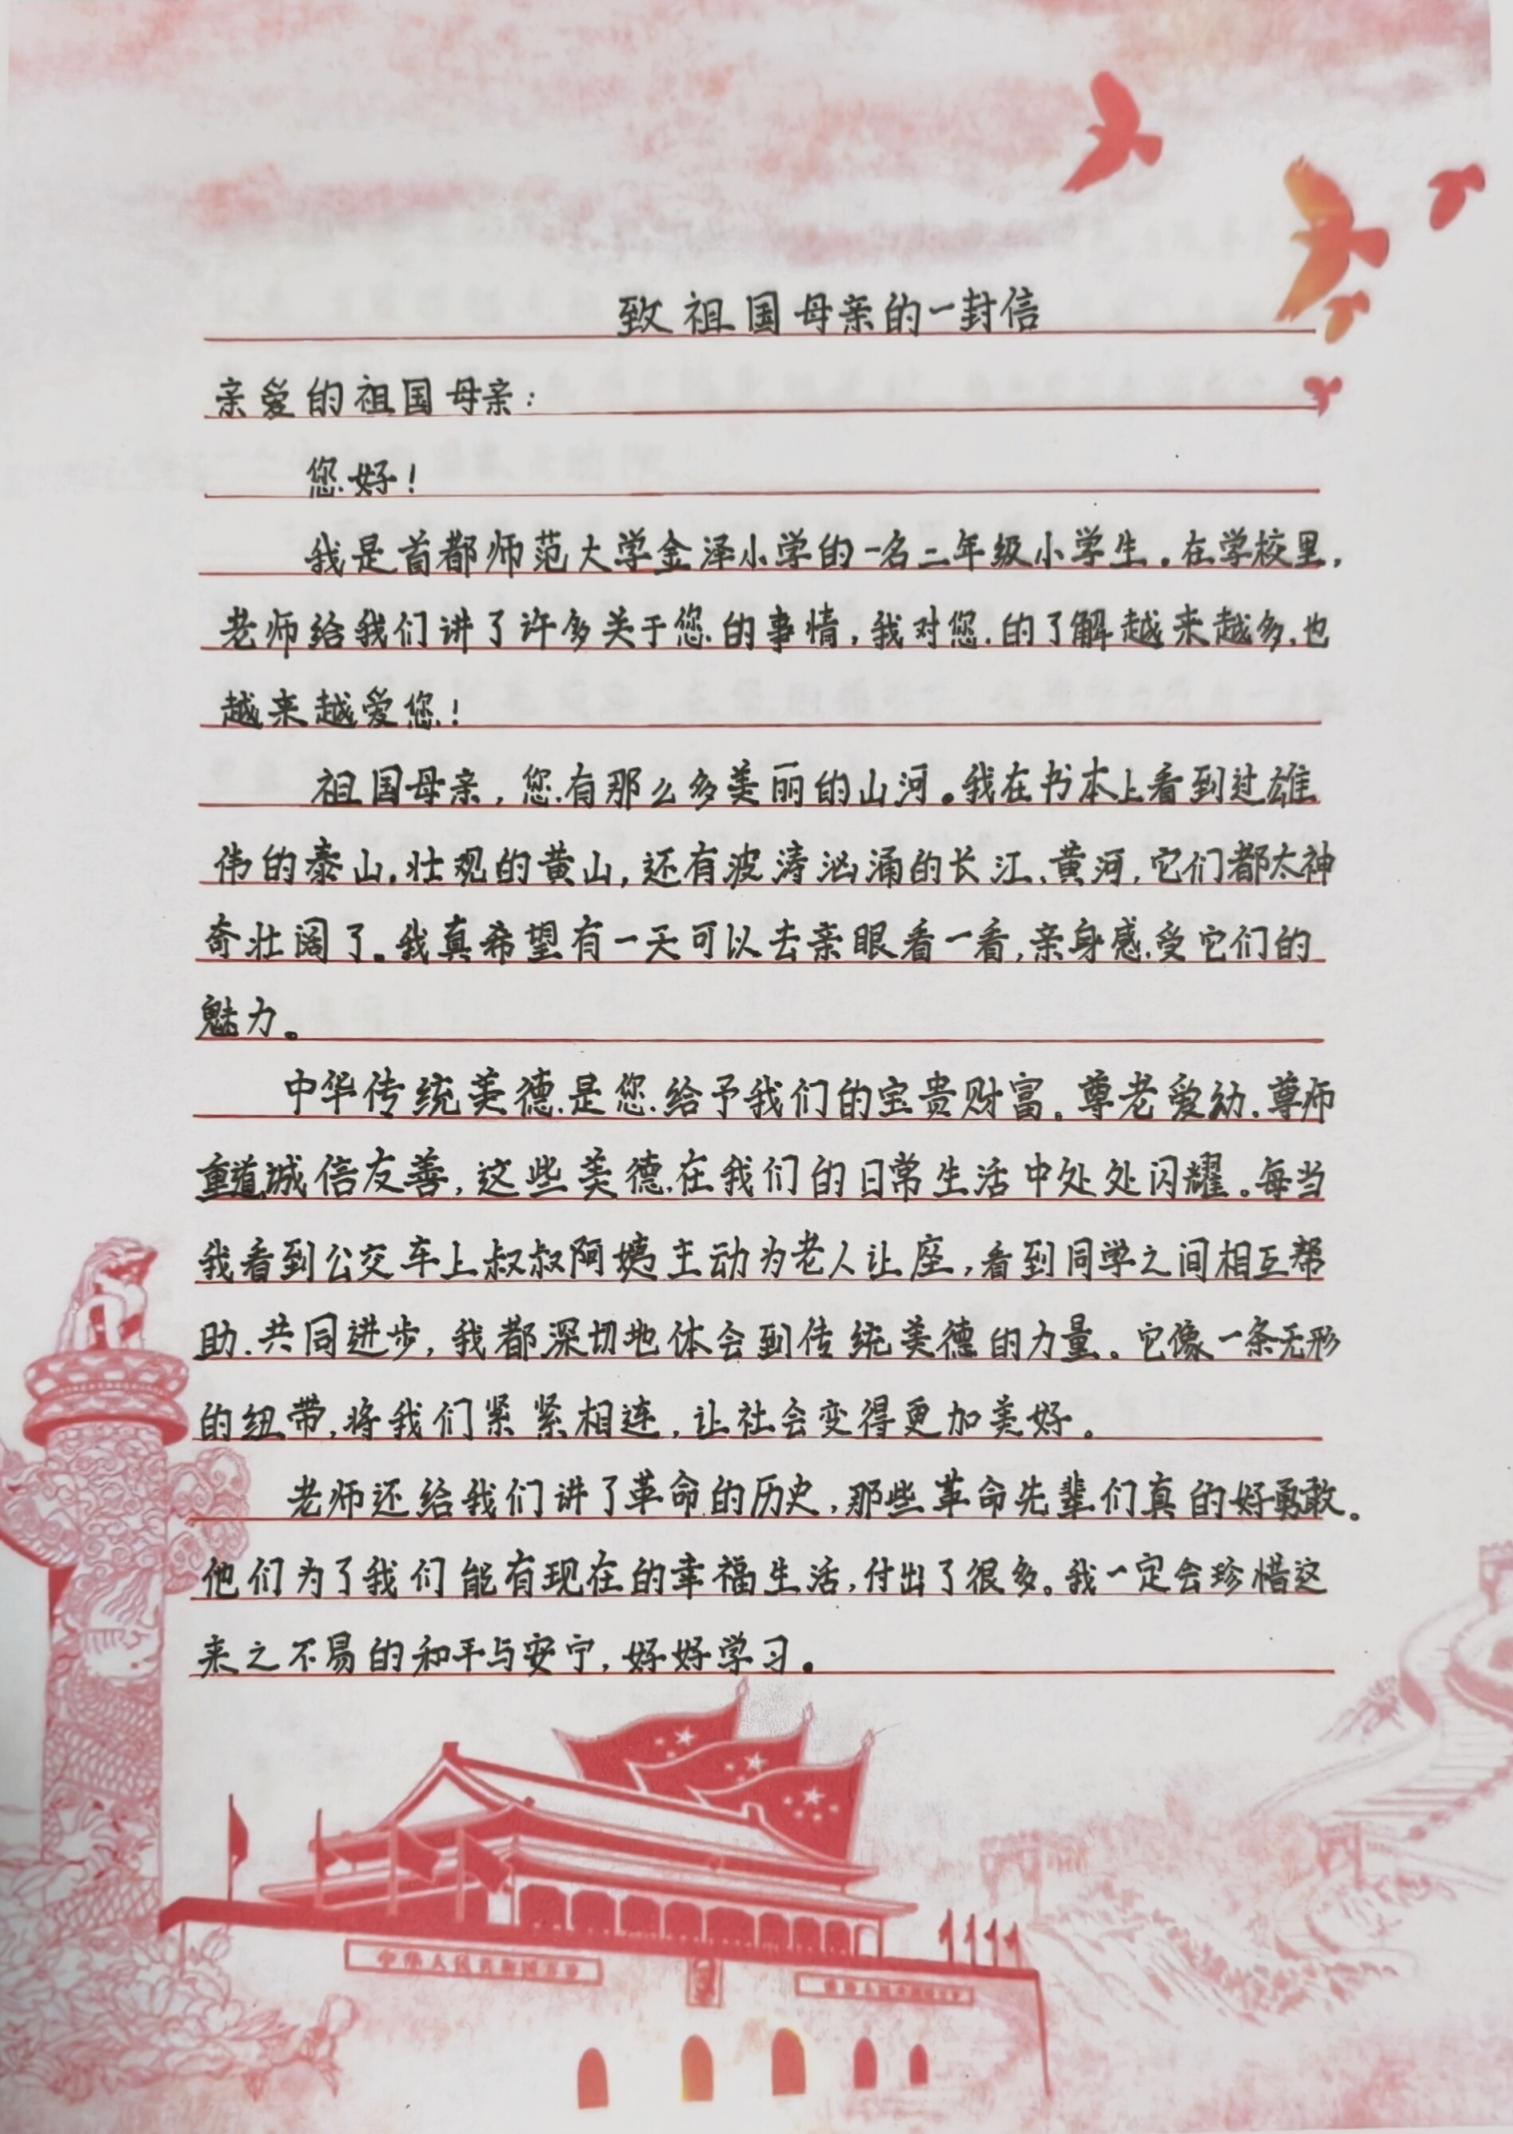 致祖国母亲的一封信
亲爱的祖国母亲：
您好！
我是首都师范大学金泽小学的一名二年级小学生。在学校里，
老师给我们讲了许多关于您的事情，我对您的了解越来越多，也
越来越爱您！
祖国母亲，您有那么多美丽的山河。我在书本上看到过雄
伟的泰山，壮观的黄山，还有波涛汹涌的长江、黄河，它们都太神
奇壮阔了。我真希望有一天可以去亲眼看一看，亲身感受它们的
魅力。
中华传统美德是您给予我们的宝贵财富。尊老爱幼、尊师
重道、诚信友善，这些美德在我们的日常生活中处处闪耀。每当
我看到公交车上叔叔阿姨主动为老人让座，看到同学之间相互帮
助、共同进步，我都深切地体会到传统美德的力量。它像一条无形
的纽带，将我们紧紧相连，让社会变得更加美好。
老师还给我们讲了革命的历史，那些革命先辈们真的好勇敢。
他们为了我们能有现在的幸福生活，付出了很多。我一定会珍惜这
来之不易的和平与安宁，好好学习。